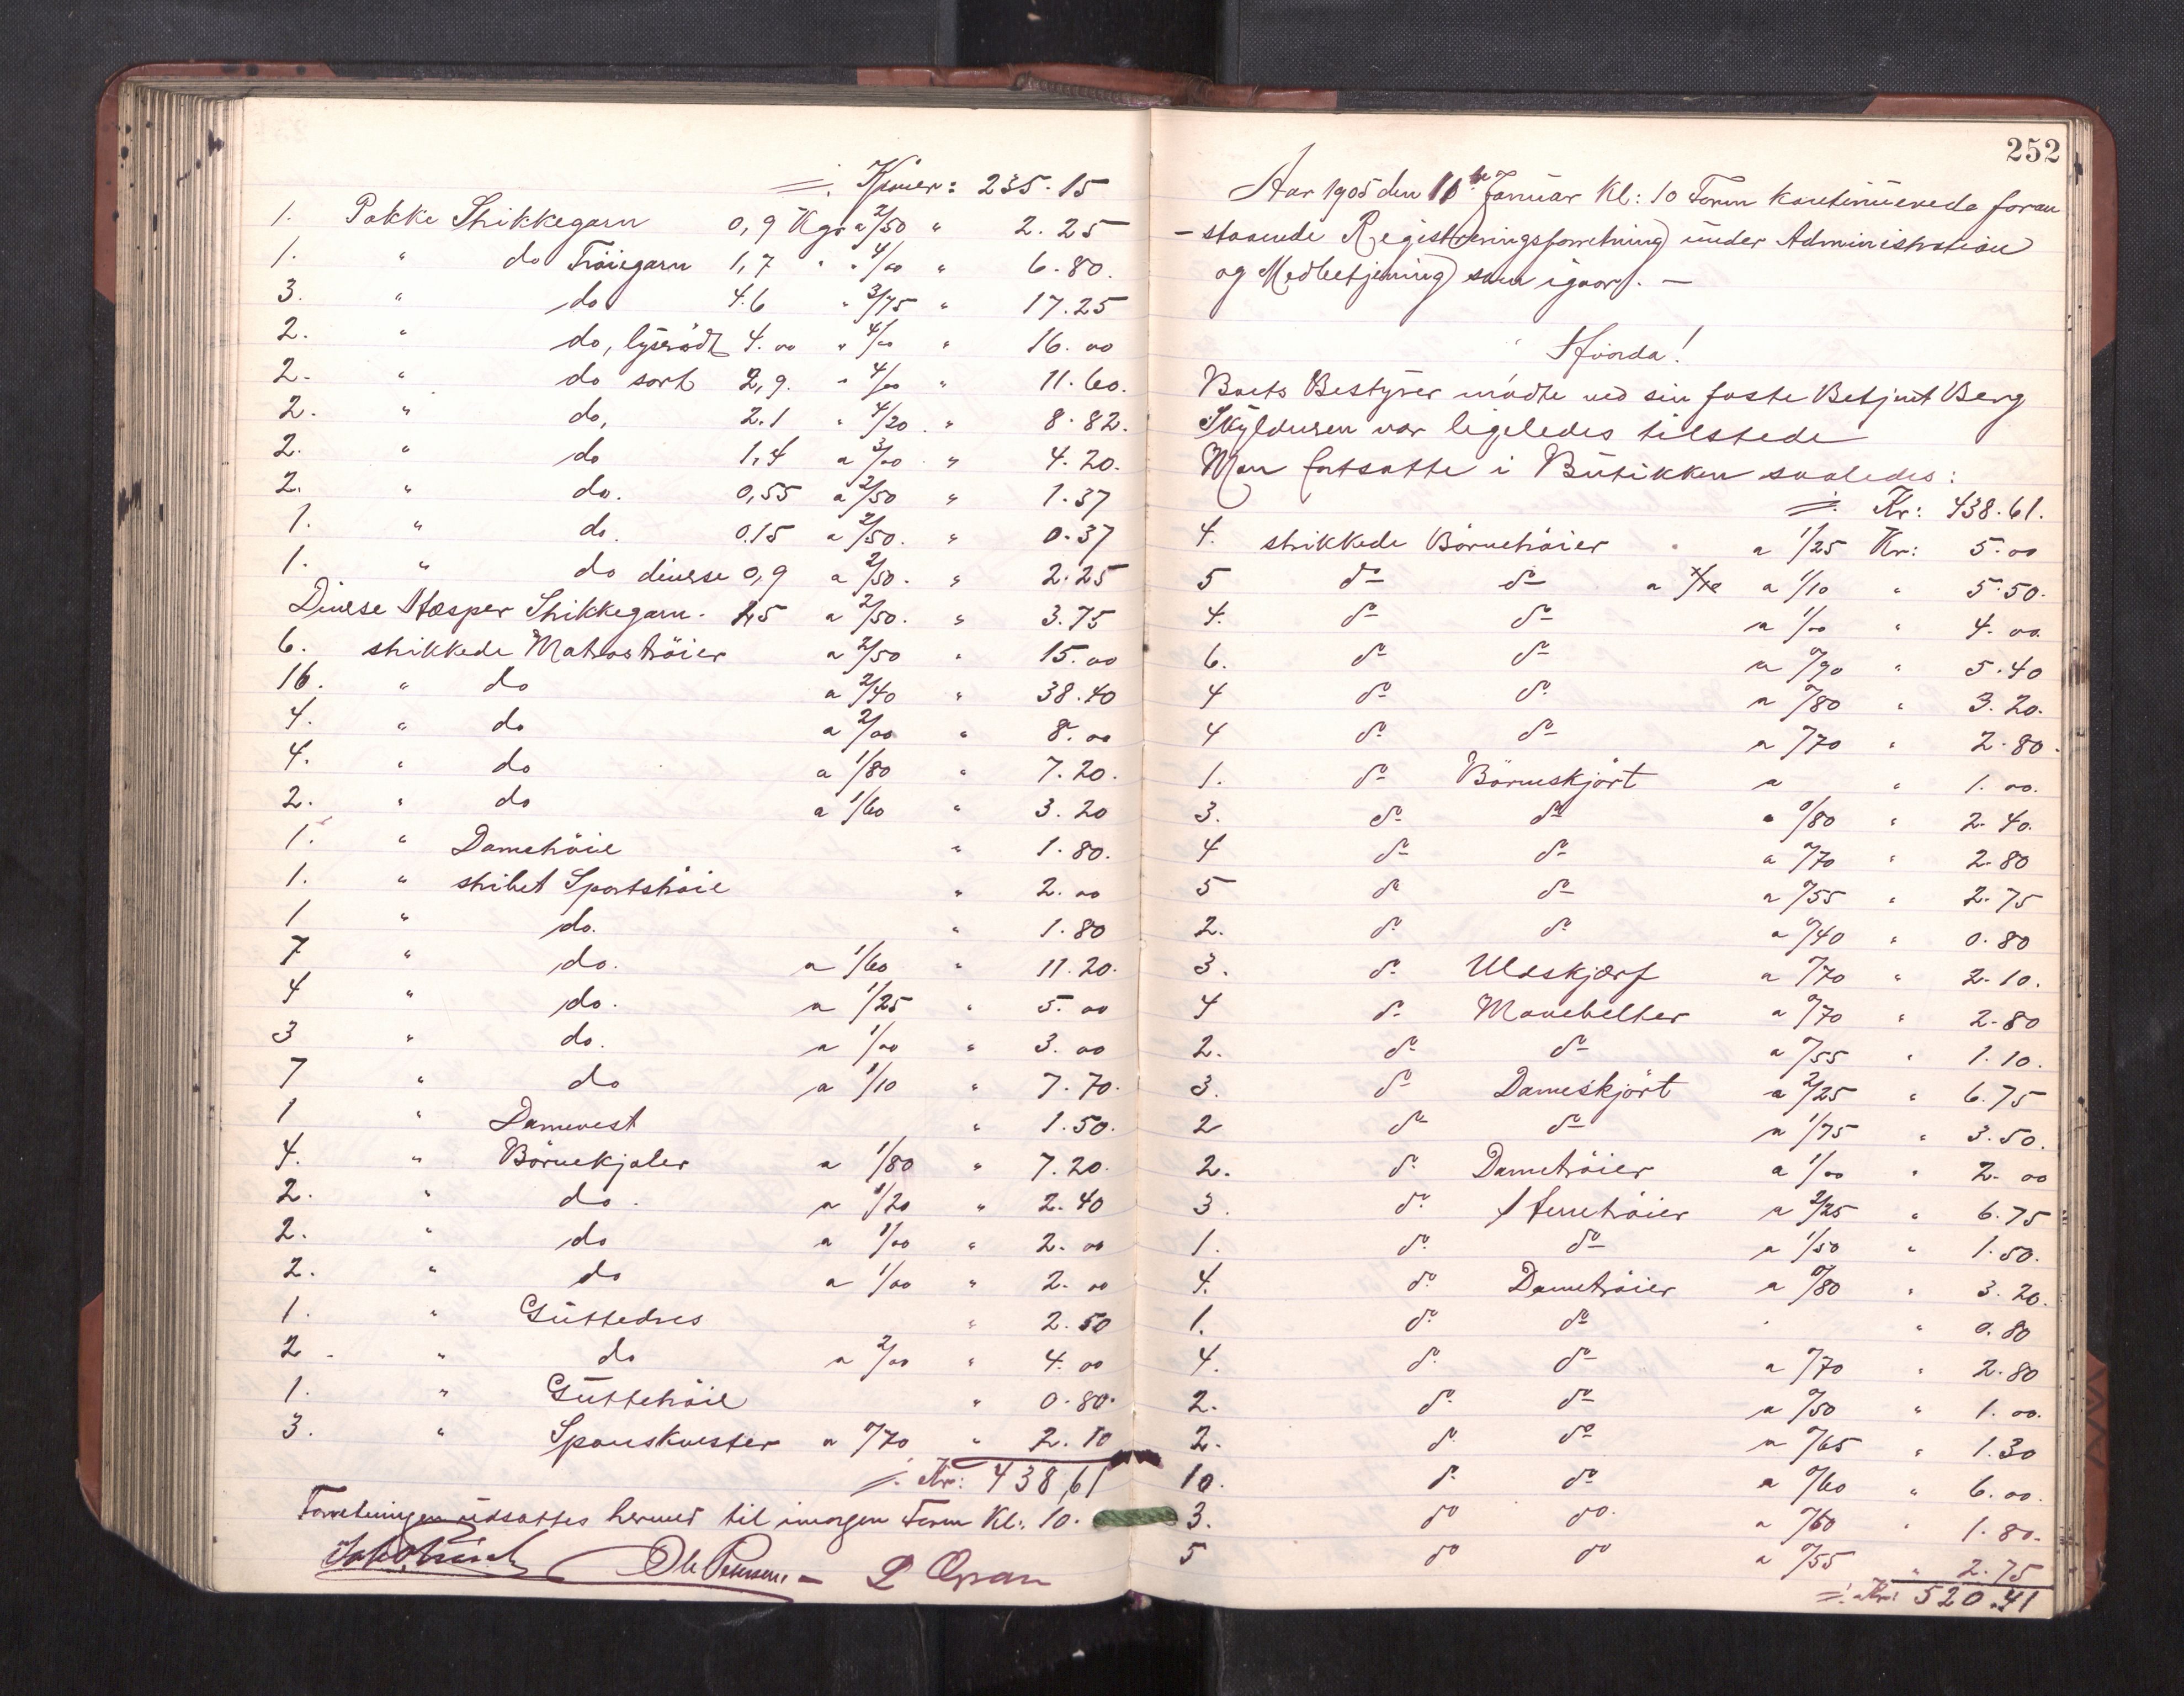 =. Kroner: 235.15
1. Pakke Strikkegarn 0,9 Kgr a 2/50 " 2.25
1. " do Tröiegarn 1,7 " " 4/00 " 6.80.
3. " do 4.6 " 3/75 " 17.25
2. " do, lyserödt 4.00 " 4/00 " 16.00
2. " do sort 2,9. " 4/00 " 11.60.
2. " do, 2.1 " 4/20 " 8.82.
2. " do 1,4 a 3/00 " 4.20.
2. " do. 0,55 a 2/50 " 1.37
1. " do. 0.15 a 2/50. " 0.37
1. " do diverse 0,9 a 2/50. " 2.25
Diverse Hæsper Strikkegarn. 1,5 a 2/50. " 3.75
6. strikkede Matroströier a 2/50 " 15.00
16. " do a 2/40 " 38.40
4. " do a 2/00 " 8.00
4. " do a 1/80 " 7.20.
2. " do a 1/60 " 3.20
1. " Dametröie " 1.80.
1. " stribet Sportströie " 2.00
1 " do. " 1.80
7 " do. a 1/60 " 11.20.
4 " do. a 1/25 " 5.00
3 " do. a 1/00 " 3.00
7 " do a 1/10 " 7.70.
1 " Damevest " 1.50.
4. " Börnekjoler a 1/80 " 7.20.
2. " do. a 1/20 " 2.40
2. " do a 1/00 " 2.00
2. " do a 1/00 " 2.00
1. " Guttedres " 2.50
2. " do a 2/00 " 4.00
1. " Guttetröie " 0.80.
3. " Spanskvester a 0/70 " 2.10
=. Kr: 438,61
Forretningen udsattes hermed til imorgen Form Kl: 10.
Ole Petersen – L Opsan
252
Aar 1905 den 11te Januar Kl: 10 Form kontinuerede foran
-staaende Registreringsforretning under Administration
og Medbetjening som igaar. —
Hvorda!
Boets Bestyrer mödte ved sin faste Betjent Berg
Skyldneren var ligeledes tilstede
Man fortsatte i Butikken saaledes:
=. Kr: 438.61.
4. strikkede Börnetröier a 1/25 Kr: 5.00
5 do do a 1/10 " 5.50.
4. do do a 1/00 " 4.00.
6. do do a 0/90 " 5.40
4 do do a 0/80 " 3.20.
4 do do a 0/70 " 2.80.
1. do Börneskjört a " 1.00.
3. do do a 0/80 " 2.40.
4 do do a 0/70 " 2.80
5 do do a 0/55 " 2.75
2. do do a 0/40 " 0.80
3. do Uldskjærf a 0/70 " 2.10.
4 do Mavebelter a 0/70 " 2.80
2. do do a 0/55 " 1.10.
3. do Dameskjört a 2/25 " 6.75
2 do do a 1/75 " 3.50.
2. do Dametröier a 1/00 " 2.00
3. do Herretröier a 2/25 " 6.75
1. do do a 1/50 " 1.50.
4. do Dametröier a 0/80 " 3.20.
1. do do " 0.80
4. do do a 0/70 " 2.80
2. do do a 0/50 " 1.00.
2. do do a 0/65 " 1.30
10. do do a 0/60 " 6.00.
3. do do. a 0/60 " 1.80.
5 do do a 0/55 " 2.75
=. Kr: 520.41